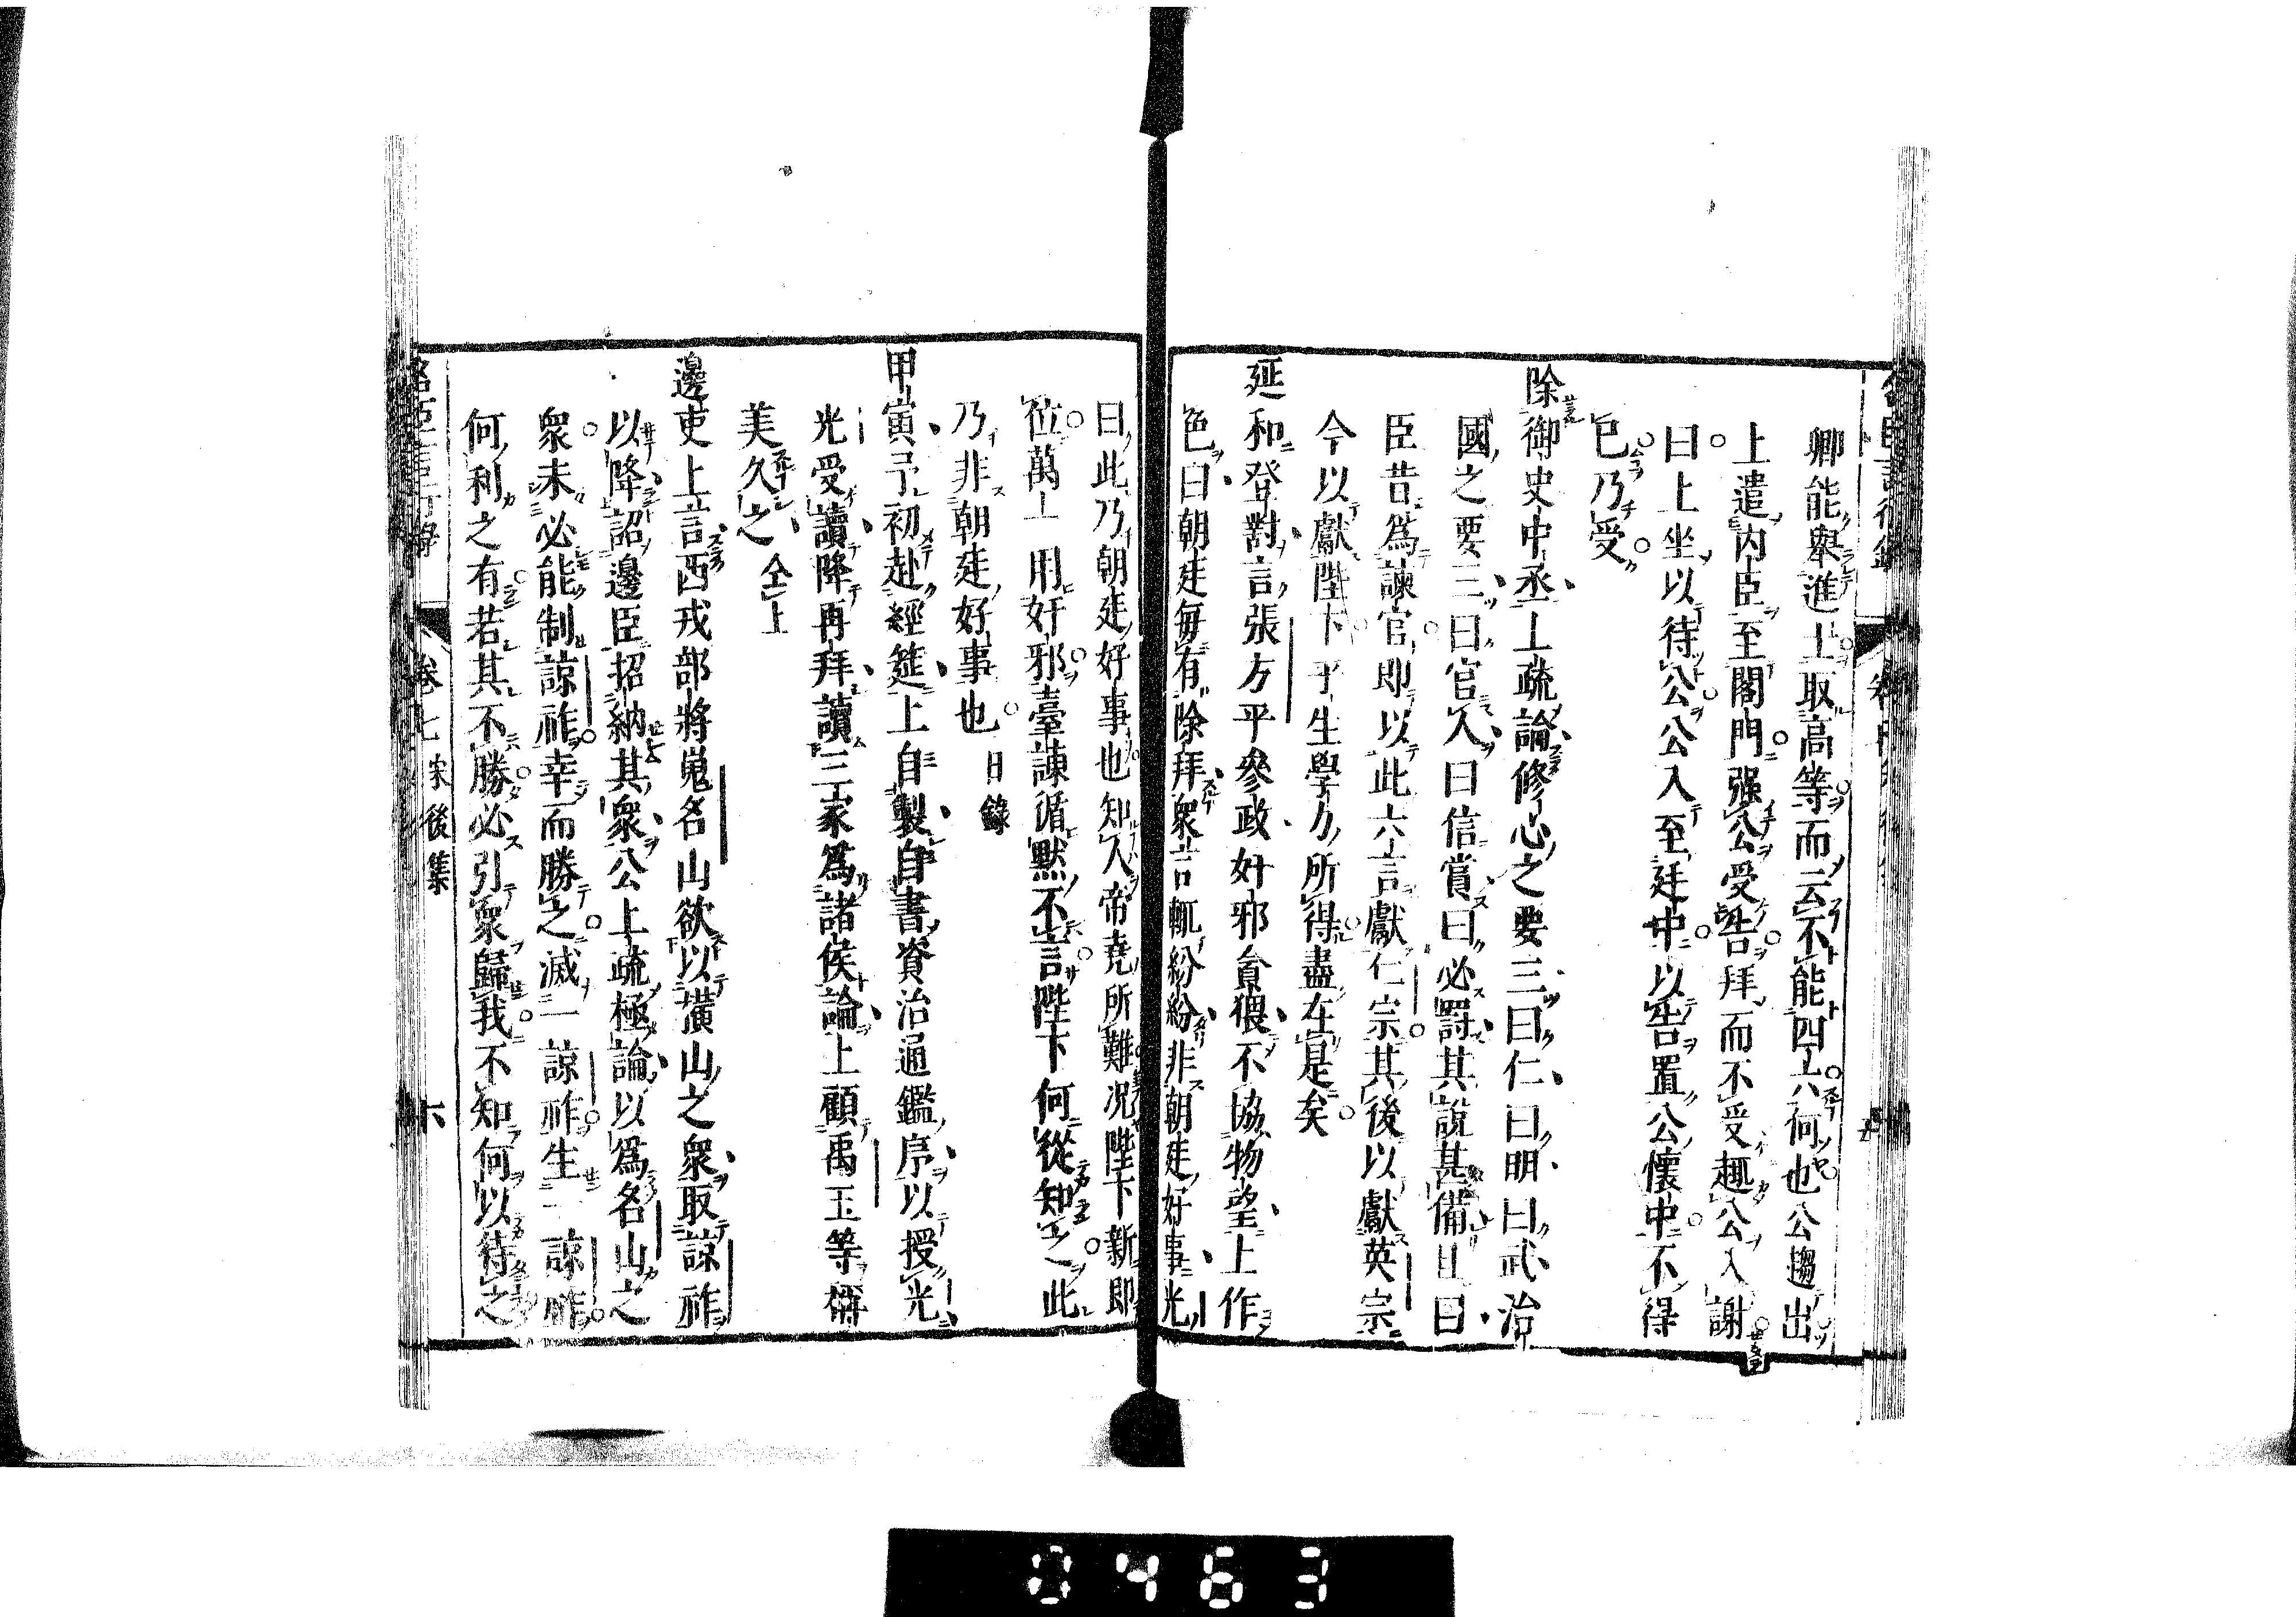 卿能舉進士取高等而云不能四六何也公趨出
上遣内臣至閤門强公受告拜而不受趣公入謝
曰上坐以待公公入至廷中以告置公懷中不得
已乃受
除御史中丞上疏論修心之要三曰仁曰明曰武治
國之要三曰官人曰信賞曰必罰其說甚備且曰
臣昔爲諫官即以此六言獻仁宗其後以獻英宗
今以獻陛下平生學力所得盡在是矣
延和登對言張方平參政奸邪貪猥不協物望上作
色曰朝廷每有除拜衆言輒紛紛非朝廷好事光
曰此乃朝廷好事也知人帝堯所難況陛下新即
位萬一用奸邪臺諫循默不言陛下何從知之此
乃非朝廷好事也 日錄
甲寅予初赴經筵上自製自書資治通鑑序以授光
光受讀降再拜讀三家爲諸侯論上顧禹玉等稱
美久之 仝上
邊吏上言西戎部將嵬名山欲以橫山之衆取諒祚
以降詔邊臣招納其衆公上疏極論以爲名山之
衆未必能制諒祚幸而勝之滅一諒祚生一諒祚
何利之有若其不勝必引衆歸我不知何以待之
卷七 宋後集
六
0463